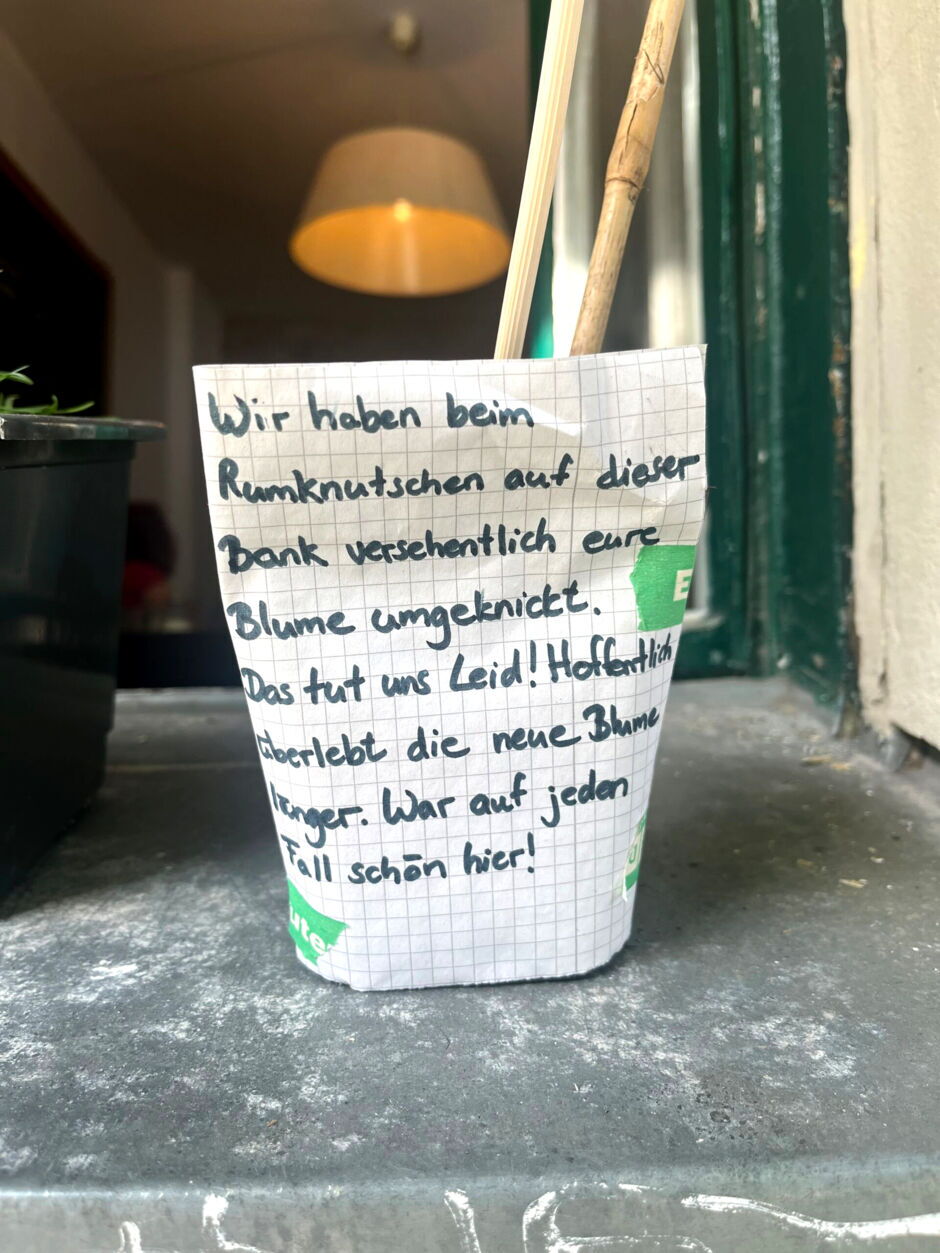 Wir haben beim
Rumknutschen auf dieser
Bank versehentlich eure
Blume umgeknickt.
Das tut uns Leid! Hoffentlich
überlebt die neue Blume
länger. War auf jeden
Fall schön hier!
E
ute